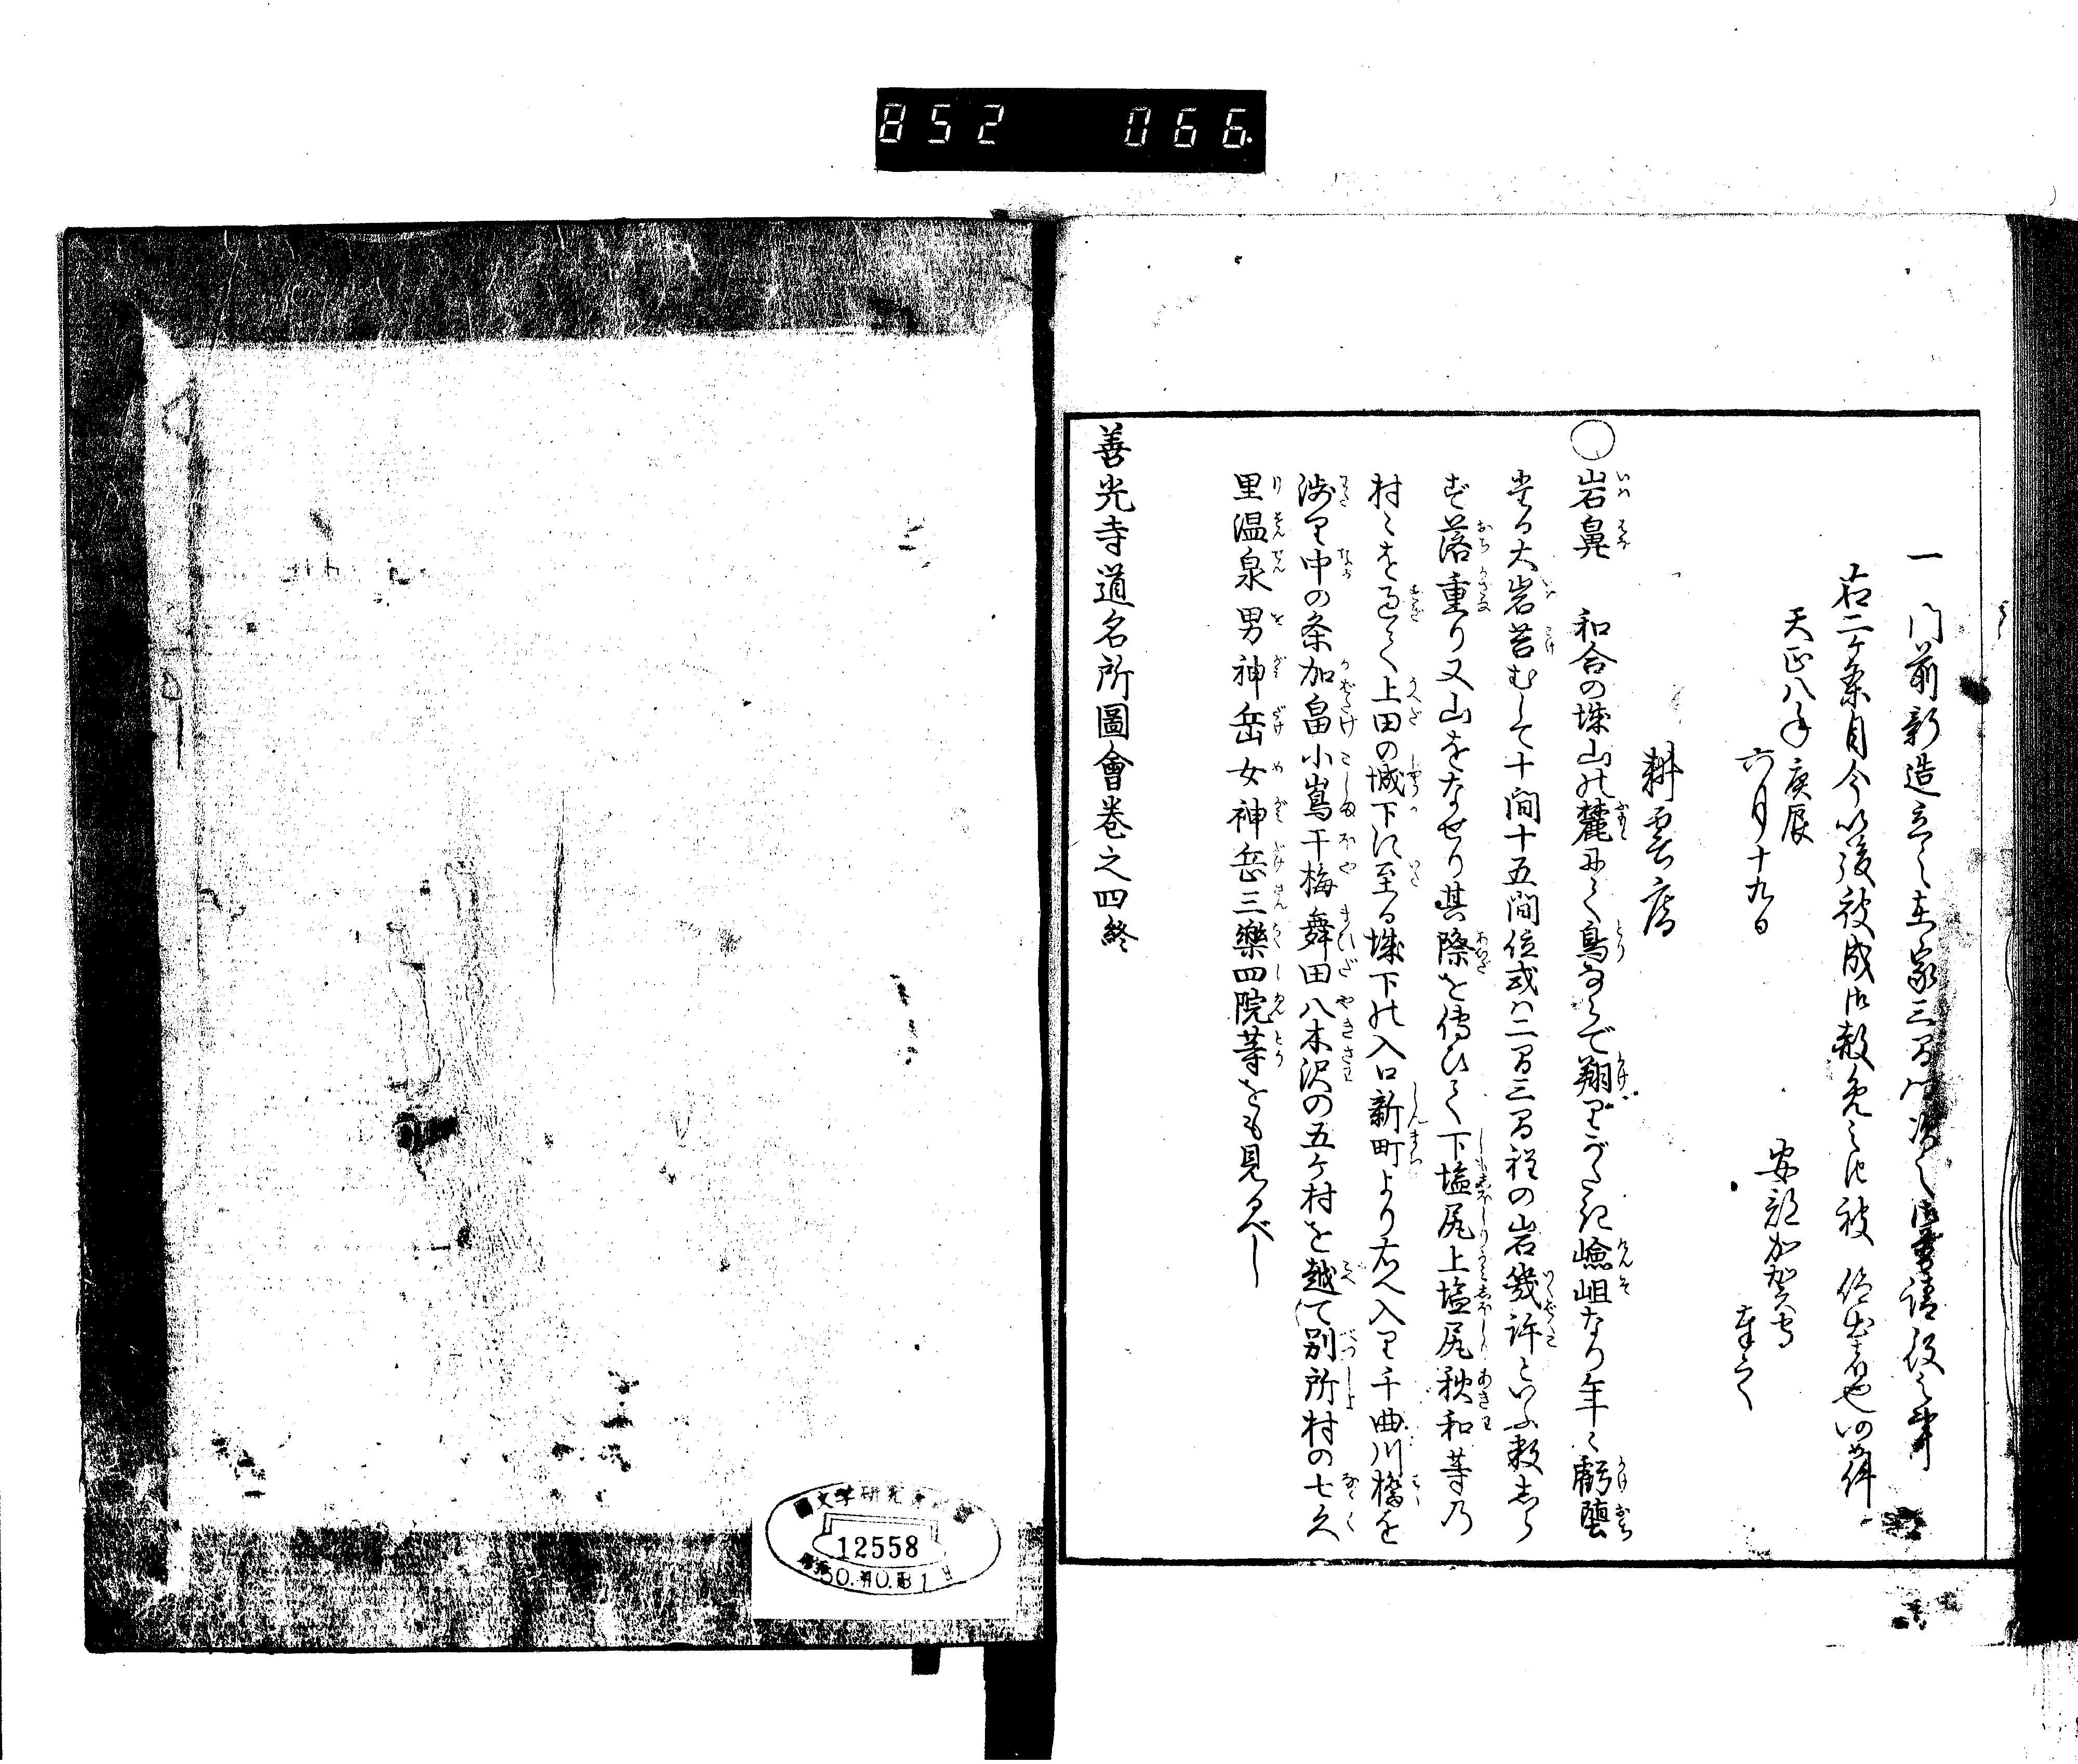 852 066
一 門前新造立之在家三間御漬之御普請役之事
右二ケ条自今以後被成御赦免之由被 仰出者也仍如件
天正八年庚辰
六月十九日
安部加賀守
奉之
耕雲庵
○岩鼻 和合の城山の麓にて鳥ならで翔りがたき嶮岨なり年々虧墮
たる大岩苔むして十間十五間位或ハ二間三間程の岩幾許といふ数しら
ず落重り又山をなせり其際を傳ひて下塩尻上塩尻秋和等の
村々を過て上田の城下に至る城下の入口新町より右へ入り千曲川橋を
渉り中の条加畠小嶌干梅舞田八木沢の五ケ村を越て別所村の七久
里温泉男神岳女神岳三樂四院等をも見るべし
善光寺道名所圖會巻之四終
12558